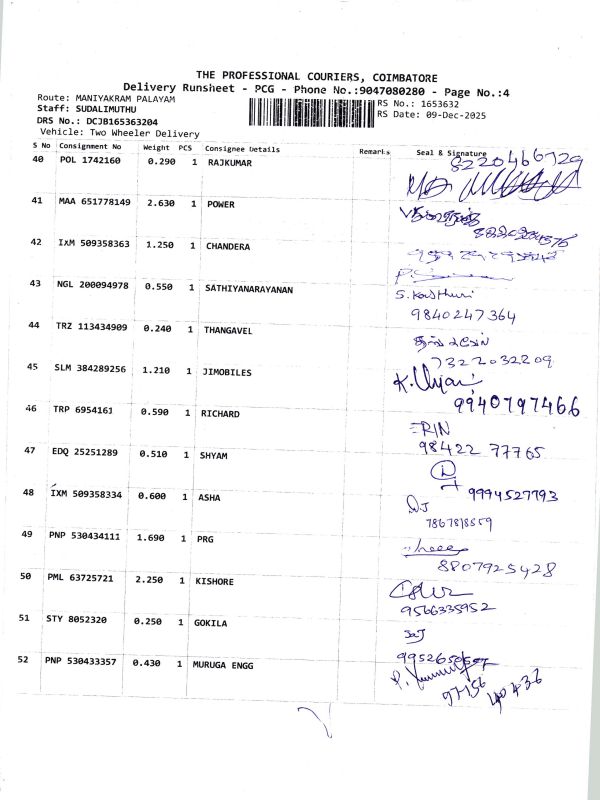 THE PROFESSIONAL COURIERS, COIMBATORE
Delivery Runsheet - PCG - Phone No.:9047080280 - Page No.:4
Route: MANIYAKRAM PALAYAM
RS No.: 1653632
Staff: SUDALIMUTHU
RS Date: 09-Dec-2025
DRS No.: DCJB165363204
Vehicle: Two Wheeler Delivery
S No Consignment No Weight PCS Consignee Details Remarks Seal & Signature
40 POL 1742160 0.290 1 RAJKUMAR 8220466729
41 MAA 651778149 2.630 1 POWER
42 IXM 509358363 1.250 1 CHANDERA
43 NGL 200094978 0.550 1 SATHIYANARAYANAN S. Kasthuri
9840247364
44 TRZ 113434909 0.240 1 THANGAVEL
7322032209
45 SLM 384289256 1.210 1 JIMOBILES
9940797466
46 TRP 6954161 0.590 1 RICHARD
98422 77765
47 EDQ 25251289 0.510 1 SHYAM
9994527793
48 IXM 509358334 0.600 1 ASHA
7867818559
49 PNP 530434111 1.690 1 PRG
8807925428
50 PML 63725721 2.250 1 KISHORE
9566335952
51 STY 8052320 0.250 1 GOKILA
52 PNP 530433357 0.430 1 MURUGA ENGG